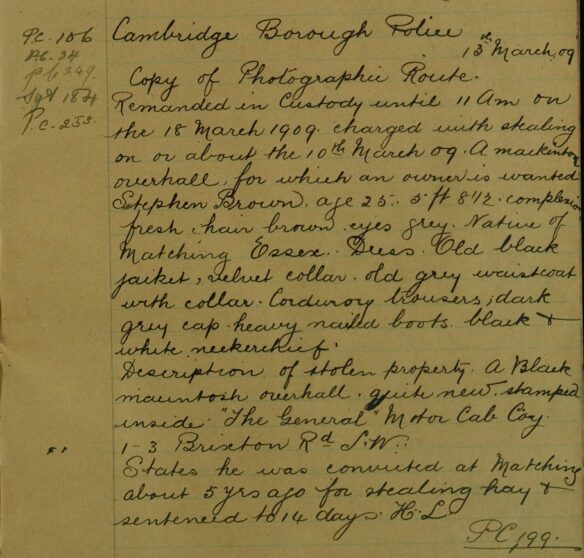 Pc. 156
P.C. 24
pc 249.
Sgt 18
Pc. 253.
Cambridge Borough Police
13th March. 09
Copy of Photographic Route.
Remanded in Custody until 11 Am on
the 18 March 1909. charged with stealing
on or about the 10th March 09. A mackintosh
overhall, for which an owner is wanted
Stephen Brown. age 25. 5 ft 8 1/2. complexion
fresh, hair brown. eyes grey. Native of
Matching Essex. Dress. Old black
jacket, velvet collar. old grey waistcoat
with collar. Corduroy trousers, dark
grey cap. heavy nailed boots. black &
white neckerchief.
Description of stolen property. A Black
macintosh overhall. quite new. stamped
inside. "The General" Motor Cab Coy.
1-3 Brixton Rd S.W.
States he was convicted at Matching
about 5 yrs ago for stealing hay &
sentenced to 14 days. H.L
PC, 199.